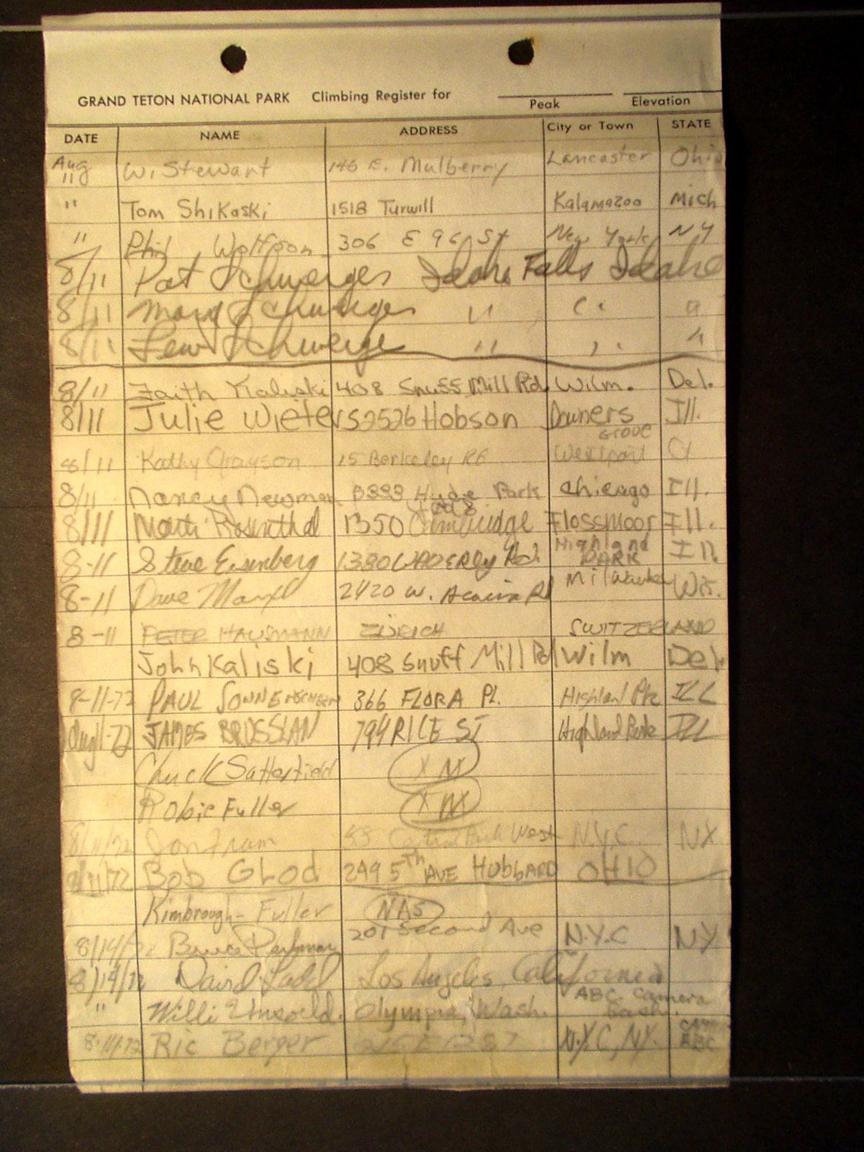 GRAND TETON NATIONAL PARK Climbing Register for
Peak Elevation
DATE NAME ADDRESS City or Town STATE
Aug 11 W. Stewart 146 E. Mulberry Lancaster Ohio
" Tom Shikaski 1518 Turwill Kalamazoo Mich
" Phil Wolfson 306 E 96 St New York NY
8/11 Pat Schwerges Idaho Falls Idaho
8/11 Mary Schwerges " " "
8/11 Lew Schwerge " " "
8/11 Faith Kaliski 408 Snuff Mill Rd. Wilm. Del.
8/11 Julie Wieters 2526 Hobson Downers Grove Ill.
8/11 Kathy 15 Berkeley Rd Westport Ct
8/11 Nancy Newman Hyde Park Chicago Ill.
8/11 Marti Rosenthal 1350 Cambridge Flossmoor Ill.
8-11 Steve Eisenberg 1380 Rd. Highland PARK Ill.
8-11 Dave 2420 W. Acacia Rd Milwaukee Wis.
8-11 PETER HAUSMANN ZÜRICH SWITZERLAND
John Kaliski 408 Snuff Mill Rd Wilm Del.
8-11-72 PAUL 366 FLORA Pl. Highland Prk ILL
Aug 11-72 JAMES BRUSSLAN 794 RICE ST Highland Park ILL
Chuck Satterfield
Robie Fuller
8/11/72 Jon Fram 55 Central Park West N.Y.C. NY
8/11/72 Bob Glod 249 5th AVE HUBBARD OHIO
Kimbrough-Fuller NAS
8/14/72 Bruce 201 Second Ave N.Y.C NY
8/14/72 David Ladd Los Angeles, California
" Willi Unsoeld. Olympia, Wash. ABC Camera
8-11-72 Ric Berger N.Y.C, N.Y. ABC